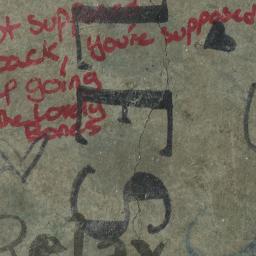 ot supposed
back, you're supposed
p going
The Lovely
Bones
Relax